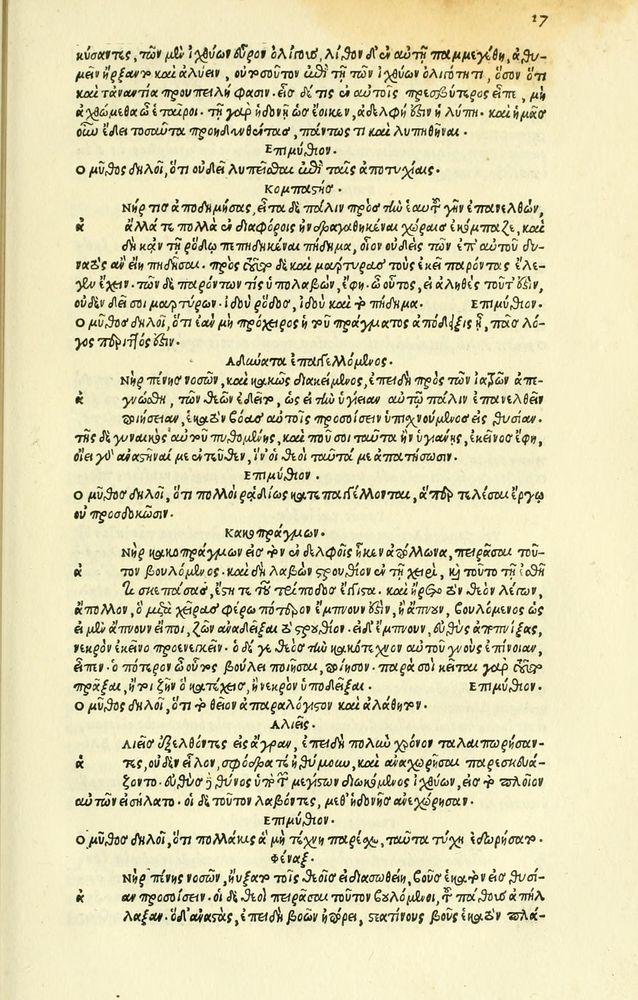 17
κύσαντες, τῶν μὲν ἰχθύων εὗρον ὀλίγους, λίθον δ' ἐν αὐτῇ παμμεγέθη, ἀθυ-
μεῖν ἤρξαντο καὶ ἀλύειν, οὐ τοσοῦτον ἐπὶ τῇ τῶν ἰχθύων ὀλιγότητι, ὅσον ὅτι
καὶ τἀναντία προυπειλήφασιν. εἷς δέ τις ἐν αὐτοῖς πρεσβύτερος εἶπε, μὴ
ἀχθώμεθα ὦ ἑταῖροι. τῇ γὰρ ἡδονῇ ὡς ἔοικεν, ἀδελφή ἐστιν ἡ λύπη. καὶ ἡμᾶς
οὖν ἔδει τοσαῦτα προησθέντας, πάντως τι καὶ λυπηθῆναι.
Επιμύθιον.
Ο μῦθος δηλοῖ, ὅτι οὐ δεῖ λυπεῖσθαι ἐπὶ ταῖς ἀποτυχίαις.
Κομπαστής.
Νήρ τις ἀποδημήσας, εἶτα δὲ πάλιν πρὸς τὴν ἑαυτοῦ γῆν ἐπανελθὼν,
ἀ ἄλλά τε πολλὰ ἐν διαφόροις ἠνδραγαθηκέναι χώραις ἐκόμπαζε, καὶ
δὴ κἂν τῇ ῥόδῳ πεπηδηκέναι πήδημα, οἷον οὐδεὶς τῶν ἐπ' αὐτοῦ δυ-
νατὸς ἂν εἴη πηδῆσαι. πρὸς τοῦτο δὲ καὶ μάρτυρας τοὺς ἐκεῖ παρόντας ἔλε-
γεν ἔχειν. τῶν δὲ παρόντων τὶς ὑπολαβὼν, ἔφη. ὦ οὗτος, εἰ ἀληθὲς τοῦτ' ἐστιν,
οὐδὲν δεῖ σοι μαρτύρων. ἰδοὺ ῥόδος, ἰδοὺ καὶ τὸ πήδημα. Επιμύθιον.
Ο μῦθος δηλοῖ, ὅτι ἐὰν μὴ πρόχειρος ἡ τοῦ πράγματος ἀπόδειξις ᾖ, πᾶς λό-
γος περιττός ἐστιν.
Αδύνατα ἐπαγγελλόμενος.
Νὴρ πένης νοσῶν, καὶ κακῶς διακείμενος, ἐπειδὴ πρὸς τῶν ἰατρῶν ἀπε-
ἀ γνώσθη, τῶν θεῶν ἐδεῖτο, ὡς εἰ τὴν ὑγίειαν αὐτῷ πάλιν ἐπανελθεῖν
ποιήσειαν, ἑκατὸν βόας αὐτοῖς προσοίσειν ὑπισχνούμενος εἰς θυσίαν.
τῆς δὲ γυναικὸς αὐτοῦ πυθομένης, καὶ ποῦ σοι ταῦτα ἢν ὑγιάνῃς, ἐκεῖνος ἔφη,
οἴει γὰρ ἀναστῆναί με ἐντεῦθεν, ἵν' οἱ θεοὶ ταῦτά με ἀπαιτήσωσιν.
Επιμύθιον.
Ο μῦθος δηλοῖ, ὅτι πολλοὶ ῥαδίως κατεπαγγέλλονται, ἅπερ τελέσαι ἔργῳ
οὐ προσδοκῶσιν.
Κακοπράγμων.
Νὴρ κακοπράγμων εἰς τὸν ἐν δελφοῖς ἧκεν ἀπόλλωνα, πειρᾶσαι τοῦ-
ἀ τον βουλόμενος. καὶ δὴ λαβὼν στρουθίον ἐν τῇ χειρὶ, καὶ τοῦτο τῇ ἐσθῆ
τι σκεπάσας, ἔστη τε τοῦ τρίποδος ἔγγιστα. καὶ ἤρετο τὸν θεὸν λέγων,
ἄπολλον, ὃ μετὰ χεῖρας φέρω πότερον ἔμπνουν ἐστιν, ἢ ἄπνουν, βουλόμενος ὡς
εἰ μὲν ἄπνουν εἴποι, ζῶν ἀναδεῖξαι τὸ στρουθίον. εἰ δ' ἔμπνουν, εὐθὺς ἀποπνίξας,
νεκρὸν ἐκεῖνο προενεγκεῖν. ὁ δέ γε θεὸς τὴν κακότεχνον αὐτοῦ γνοὺς ἐπίνοιαν,
εἶπεν. ὁπότερον ὦ οὗτος βούλει ποιῆσαι, ποίησον. παρὰ σοὶ κεῖται γὰρ τοῦτο
πρᾶξαι, ἤτοι ζῆν ὃ κατέχεις, ἢ νεκρὸν ὑποδεῖξαι. Επιμύθιον.
Ο μῦθος δηλοῖ, ὅτι τὸ θεῖον ἀπαραλόγιστον καὶ ἀλάθητον.
Αλιεῖς.
Αλιεῖς ἐξελθόντες εἰς ἄγραν, ἐπειδὴ πολὺν χρόνον ταλαιπωρήσαν-
ἀ τες, οὐδὲν εἷλον, σφόδρα τε ἠθύμουν, καὶ ἀναχωρῆσαι παρεσκευά-
ζοντο. εὐθὺς δὲ θύννος ὑπό του μεγίστων διωκόμενος ἰχθύων, εἰς τὸ πλοῖον
αὐτῶν εἰσήλατο. οἱ δὲ τοῦτον λαβόντες, μεθ' ἡδονῆς ἀνεχώρησαν.
Επιμύθιον.
Ο μῦθος δηλοῖ, ὅτι πολλάκις ἃ μὴ τέχνη παρέσχε, ταῦτα τύχη ἐδωρήσατο.
Φέναξ.
Νὴρ πένης νοσῶν, ηὔξατο τοῖς θεοῖς εἰ διασωθείη, βοῦς ἑκατὸν εἰς θυσί-
ἀ αν προσοίσειν. οἱ δὲ θεοὶ πειρᾶσαι τοῦτον βουλόμενοι, τοῦ πάθους ἀπήλ
λαξαν. ὁ δ' ἀναστὰς, ἐπειδὴ βοῶν ἠπόρει, στεατίνους βοῦς ἑκατὸν πλά-